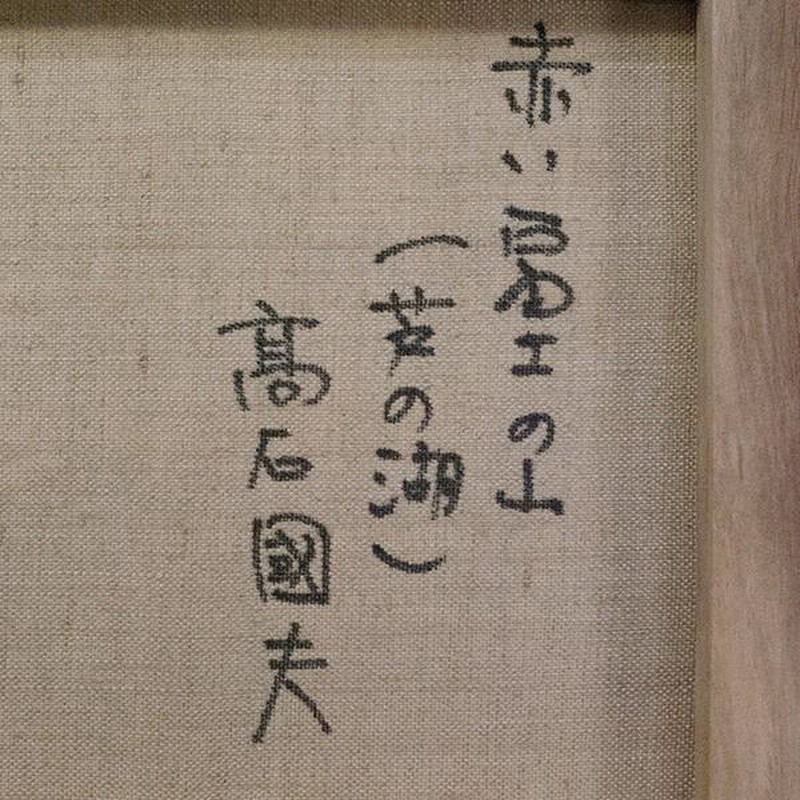 赤い富士の山
(芦の湖)
高石國夫